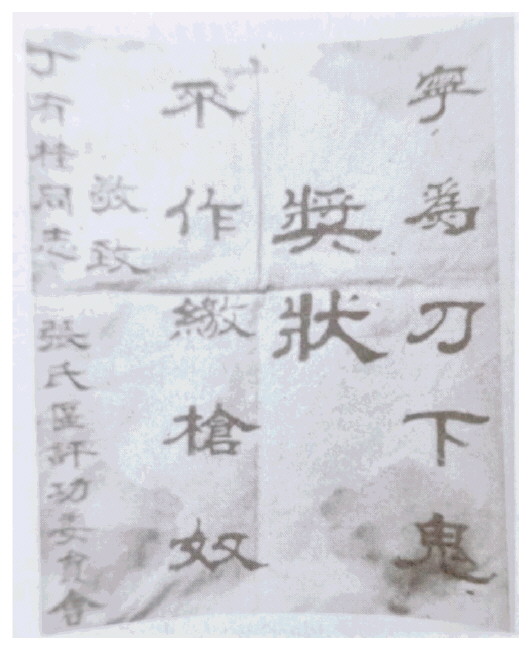 寧為刀下鬼
獎狀
不作繳槍奴
敬致
丁有桂同志
張氏區評功委員會